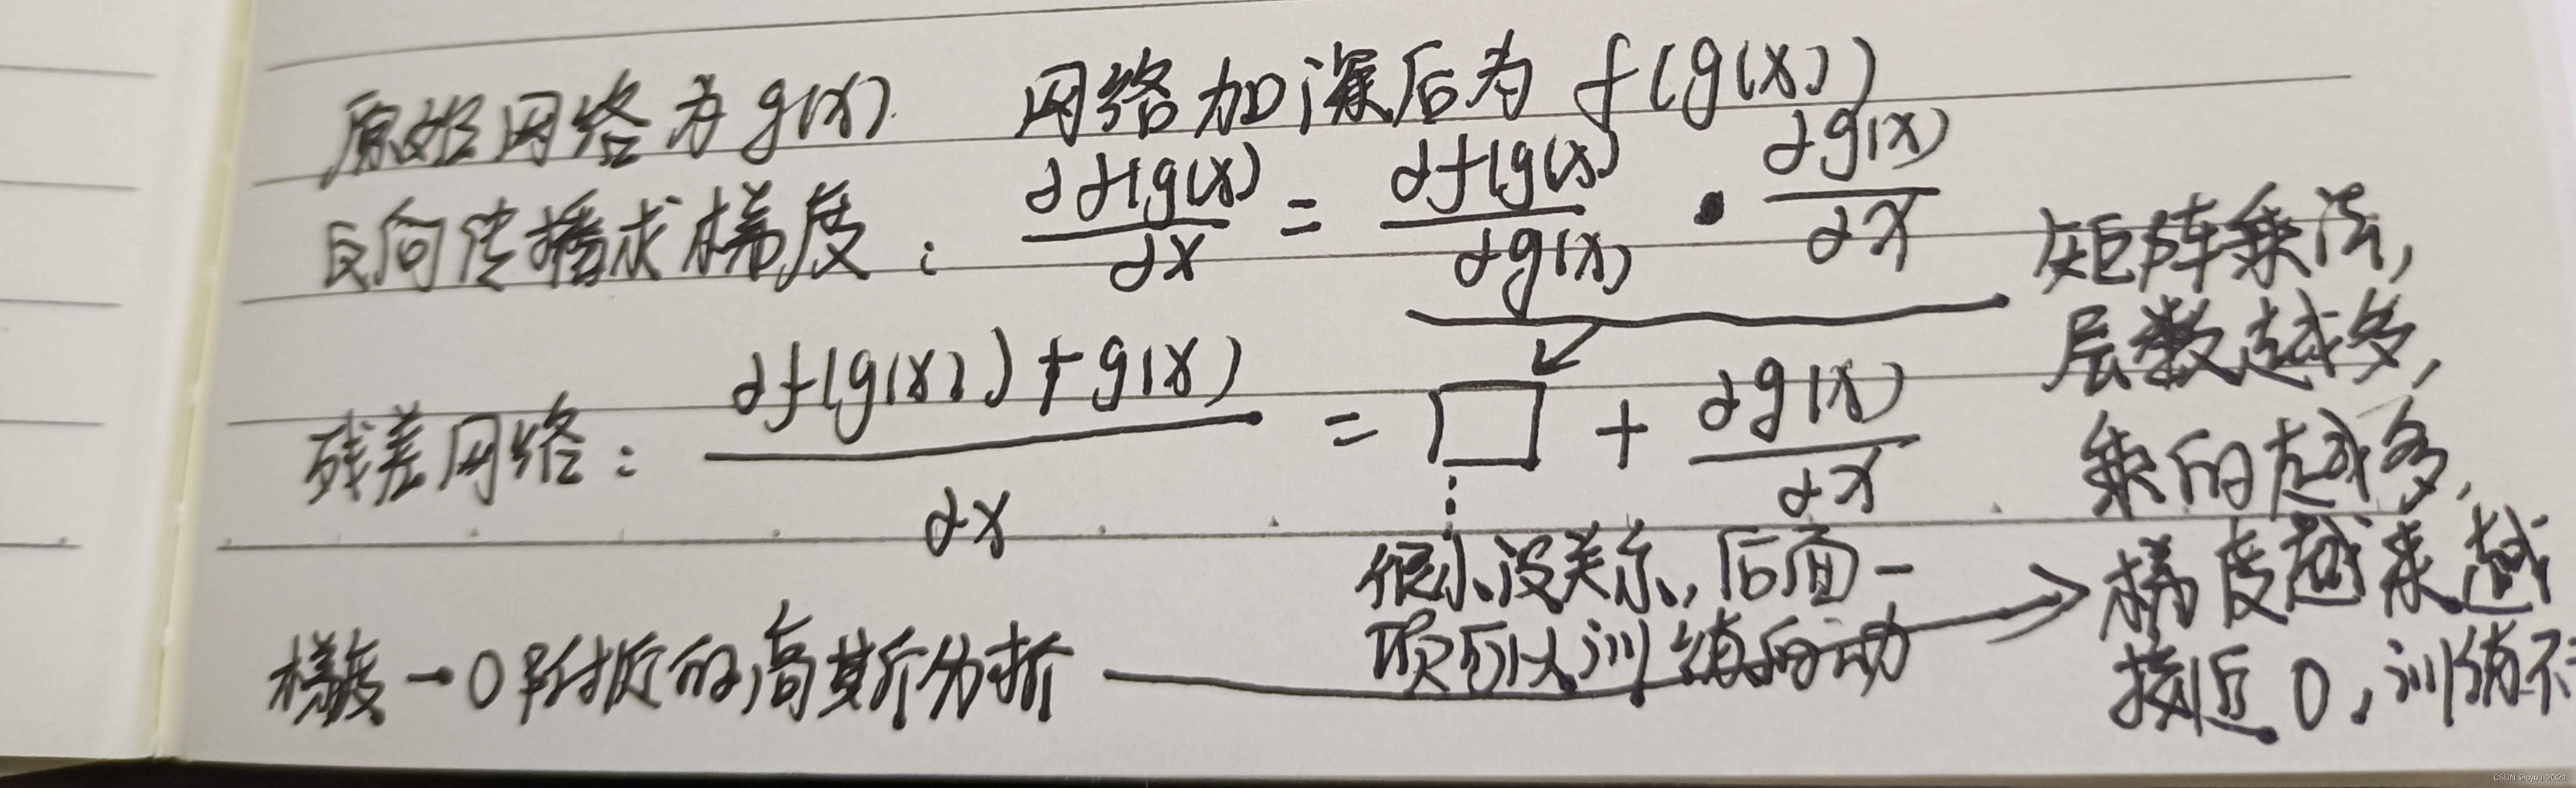 原始网络为 g(x). 网络加深后为 f(g(x))
反向传播求梯度: ∂f(g(x) / ∂x = ∂f(g(x) / ∂g(x) · ∂g(x) / ∂x
矩阵乘法,
层数越多,
乘的越多,
梯度越来越
接近 0, 训练不
残差网络: ∂f(g(x)) + g(x) / ∂x = □ + ∂g(x) / ∂x
很小没关系, 后面一
项可以训练的动
梯度→0附近的高斯分析
CSDN @oyou-2021